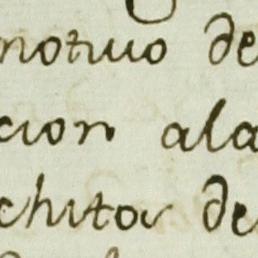 motivo de
cion ala
chitor de